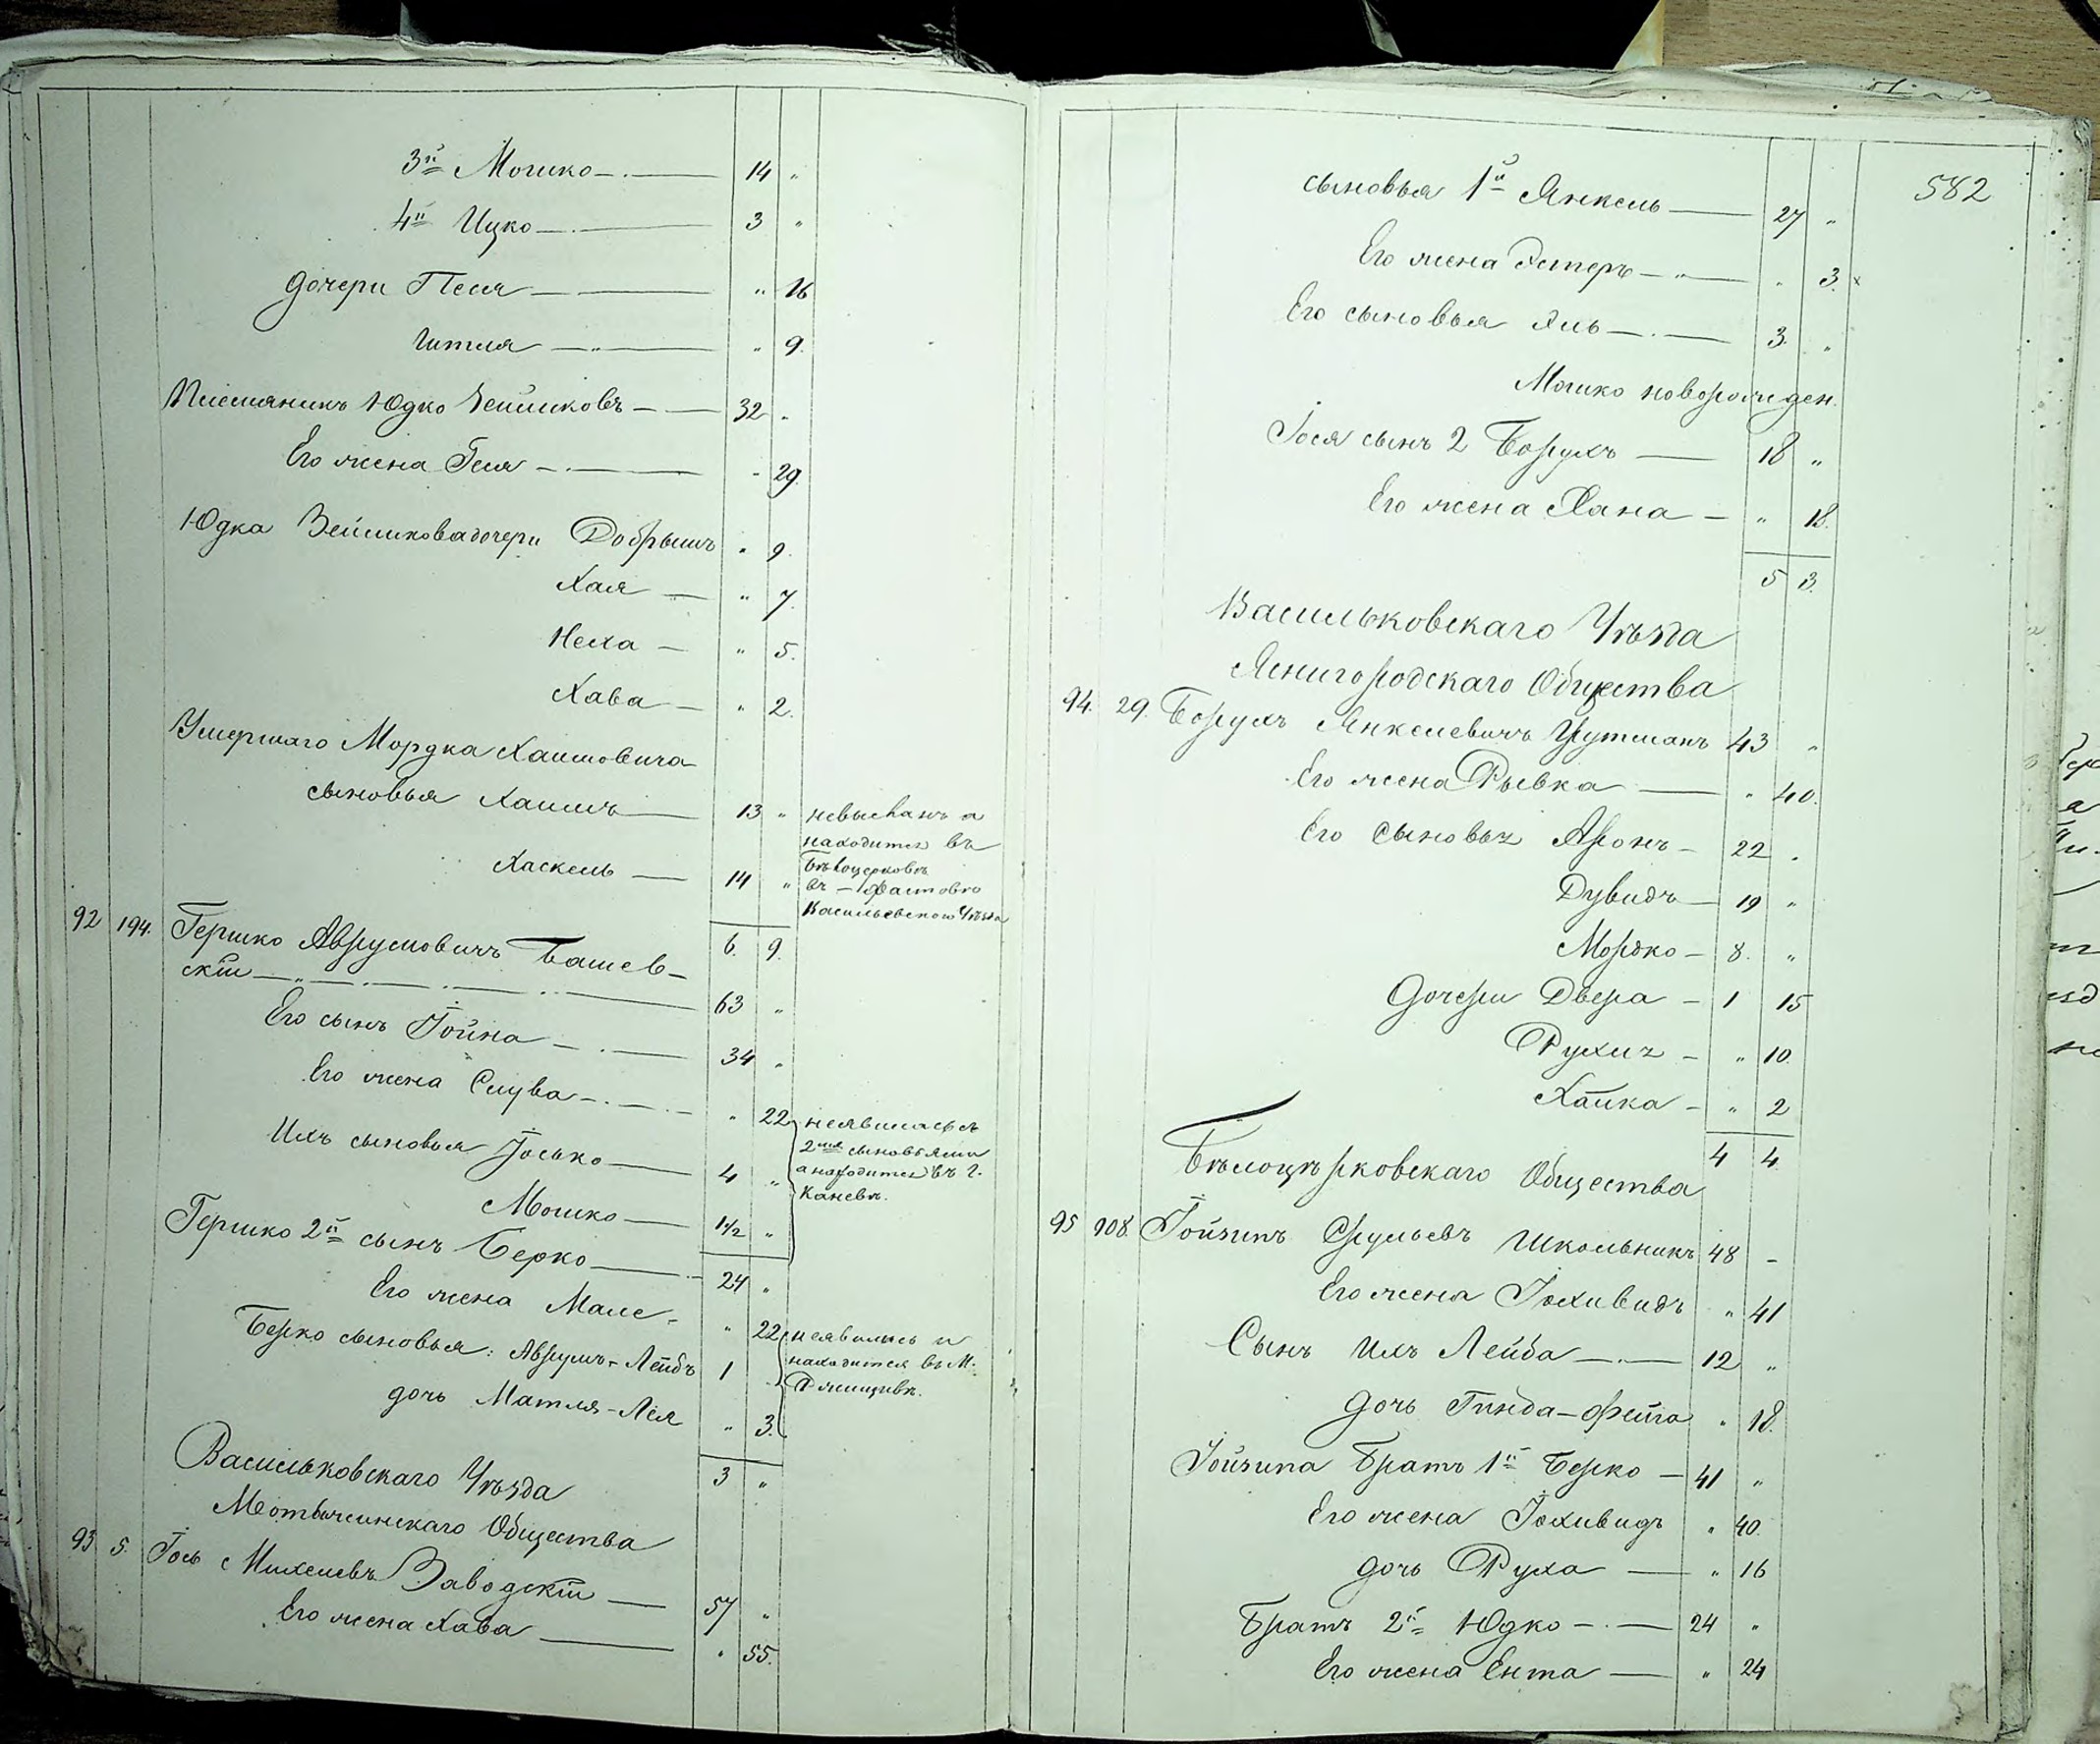 3й Мошко — 14 "
4й Ицко — 3 "
дочери Песя — " 16
Гитля — " 9.
Племяникъ Юдко Зеймиковъ — 32 "
Его жена Геля — " 29.
Юдка Зеймикова дочери Добрышъ " 9.
Хая — " 7.
Неха — " 5.
Хава — " 2.
Умершаго Мордка Хаимовича
сыновья Хаимъ — 13 " невысланъ а
находится въ
Хаскель — 14 "
въ — Фастовѣ
Васильевскаго Уѣзда
6. 9.
92 194. Гершко Аврумовичъ Башев-
скій — 63 "
Его сынъ Іойна — 34 "
Его жена Слува — " 22 неявилась съ
2мя сыновьями
Ихъ сыновья Іосько — 4 " а находится въ г.
Каневѣ.
Мошко — 1 1/2 "
Гершко 2й сынъ Берко — 24 "
Его жена Мале — " 22 неявились и
находится въ М.
Берко сыновья: Аврумъ-Лейбъ 1
Ржищевѣ.
дочь Матля-Лея " 3.
3 "
Васильковскаго Уѣзда
Мотыжинскаго Общества
93 5. Іось Михелевъ Заводскій — 57 "
Его жена Хава — " 55.
582
сыновья 1й Янкель — 27 "
Его жена Эстеръ — " 3. x
Его сыновья Эль — 3. "
Мошко новорожден.
Іося сынъ 2 Борухъ — 18 "
Его жена Хана — " 18.
5 3.
Васильковскаго Уѣзда
Ясногородскаго Общества
94. 29. Борухъ Янкелевичъ Гутманъ 43 "
Его жена Рывка — " 40.
Его сыновья Аронъ — 22 "
Дувидъ — 19 "
Мордко — 8. "
Дочери Двера — 1 15
Рухля — " 10.
Хайка — " 2
4 4.
Бѣлоцѣрковскаго Общества
95 908. Іойзипъ Срульевъ Школьникъ 48 -
Его жена Іохивидъ " 41
Сынъ ихъ Лейба — 12 "
дочь Гинда-Фейга " 18.
Іойзипа братъ 1й Берко — 41 "
Его жена Іохивидъ " 40.
дочь Руха — " 16
Братъ 2й Юдко — 24 "
Его жена Ента — " 24